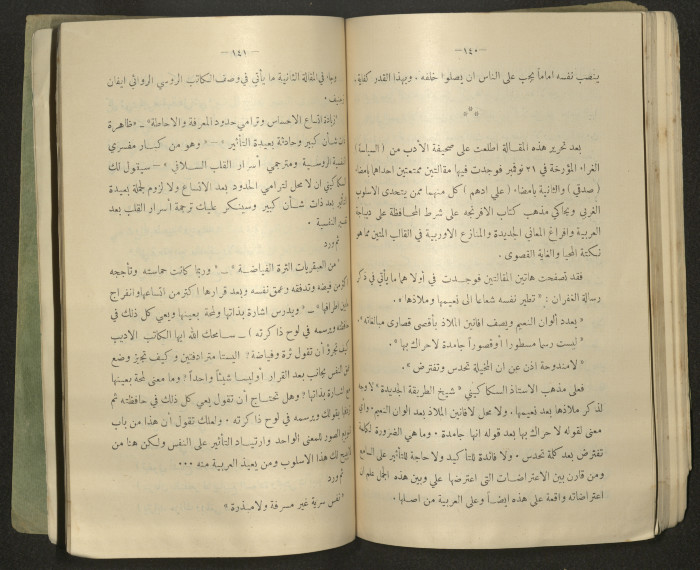 — ١٤٠ —
ينصب نفسه اماماً يجب على الناس ان يصلوا خلفه ، وبهذا القدر كفاية.
***
بعد تحرير هذه المقالة اطلعت على صحيفة الأدب من ( السياسة )
الغراء المؤرخة في ٢١ نوفمبر فوجدت فيها مقالتين ممتعتين احداهما بامضاء
( صدقي ) والثانية بامضاء ( علي ادهم ) كل منهما ممن يتحدى الاسلوب
الغربي ويحاكي مذهب كتاب الافرنجه على شرط المحافظة على ديباجة
العربية وافراغ المعاني الجديدة والمنازع الاوربية في القالب المتين مما هو
نكتة المحيا والغاية القصوى .
فقد تصفحت هاتين المقالتين فوجدت في أولاهما ما يأتي في ذكر
رسالة الغفران : " تطير نفسه شعاعا الى نعيمها وملاذها " .
" يعدد ألوان النعيم ويصف افانين الملاذ بأقصى قصارى مبالغاته ".
" ليست رسما مسطورا أوقصورا جامدة لاحراك بها " .
" لامندوحة اذن عن ان المخيلة تحدس وتفترض " .
فعلى مذهب الاستاذ السكاكيني " شيخ الطريقة الجديدة " لاوجه
لذكر ملاذها بعد نعيمها . ولا محل لافانين الملاذ بعد الوان النعيم . وأي
معنى لقوله لا حراك بها بعد قوله انها جامدة . وما هي الضرورة لكلمة
تفترض بعد كلة تحدس . ولا فائدة للتأكيد ولا حاجة للتأثير على السامع
ومن قارن بين الاعتراضات التى اعترضها علي وبين هذه الجمل علم ان
اعتراضاته واقعة على هذه ايضاً وعلى العربية من اصلها .
— ١٤١ —
وجاء في المقالة الثانية ما يأتي في وصف الكاتب الروسي الروائي ايفان
" زيادة اتساع الاحساس وترامي حدود المعرفة والاحاطة " — " ظاهرة
ذات شأن كبير وحادثة بعيدة التأثير " — " وهو من كبار مفسري
النفسية الروسية ومترجمي أسرار القلب السلافي " — سيقول لك
السكاكيني ان لا محل لترامي الحدود بعد الاتساع ولا لزوم لجملة بعيدة
التأثير بعد ذات شأن كبير وسينكر عليك ترجمة أسرار القلب بعد
تفسير النفسية .
ثم ورد
" من العبقريات الثرة الفياضة " — " وربما كانت حماسته وتأججه
اكثر من فيضه وتدفقه وعمق نفسه وبعد قرارها اكثر من اتساعها وانفراج
اطرافها " — " ويدرس اشارة بذاتها ولمحة بعينها ويعي كل ذلك في
حافظته ويرسمه في لوح ذاكرته ) — سامحك الله ايها الكاتب الاديب
كيف تجرؤ أن تقول ثرة وفياضة ? اليستا مترادفتين وكيف تجيز وضع
عمق النفس بجانب بعد القرار أوليسا شيئاً واحداً ? وما معنى لمحة بعينها
مع اشارة بذاتها ? وهل تحتاج أن تقول يعي كل ذلك في حافظته ثم
بقولك ويرسمه في لوح ذاكرته . ولعلك تقول أن هذا من باب
الصور للمعنى الواحد وارتياد التأثير على النفس ولكن هنا من
لك هذا الاسلوب ومن يعيذ العربية منه ...
ثم ورد
" نفس سرية غير مسرفة ولا مبذرة "